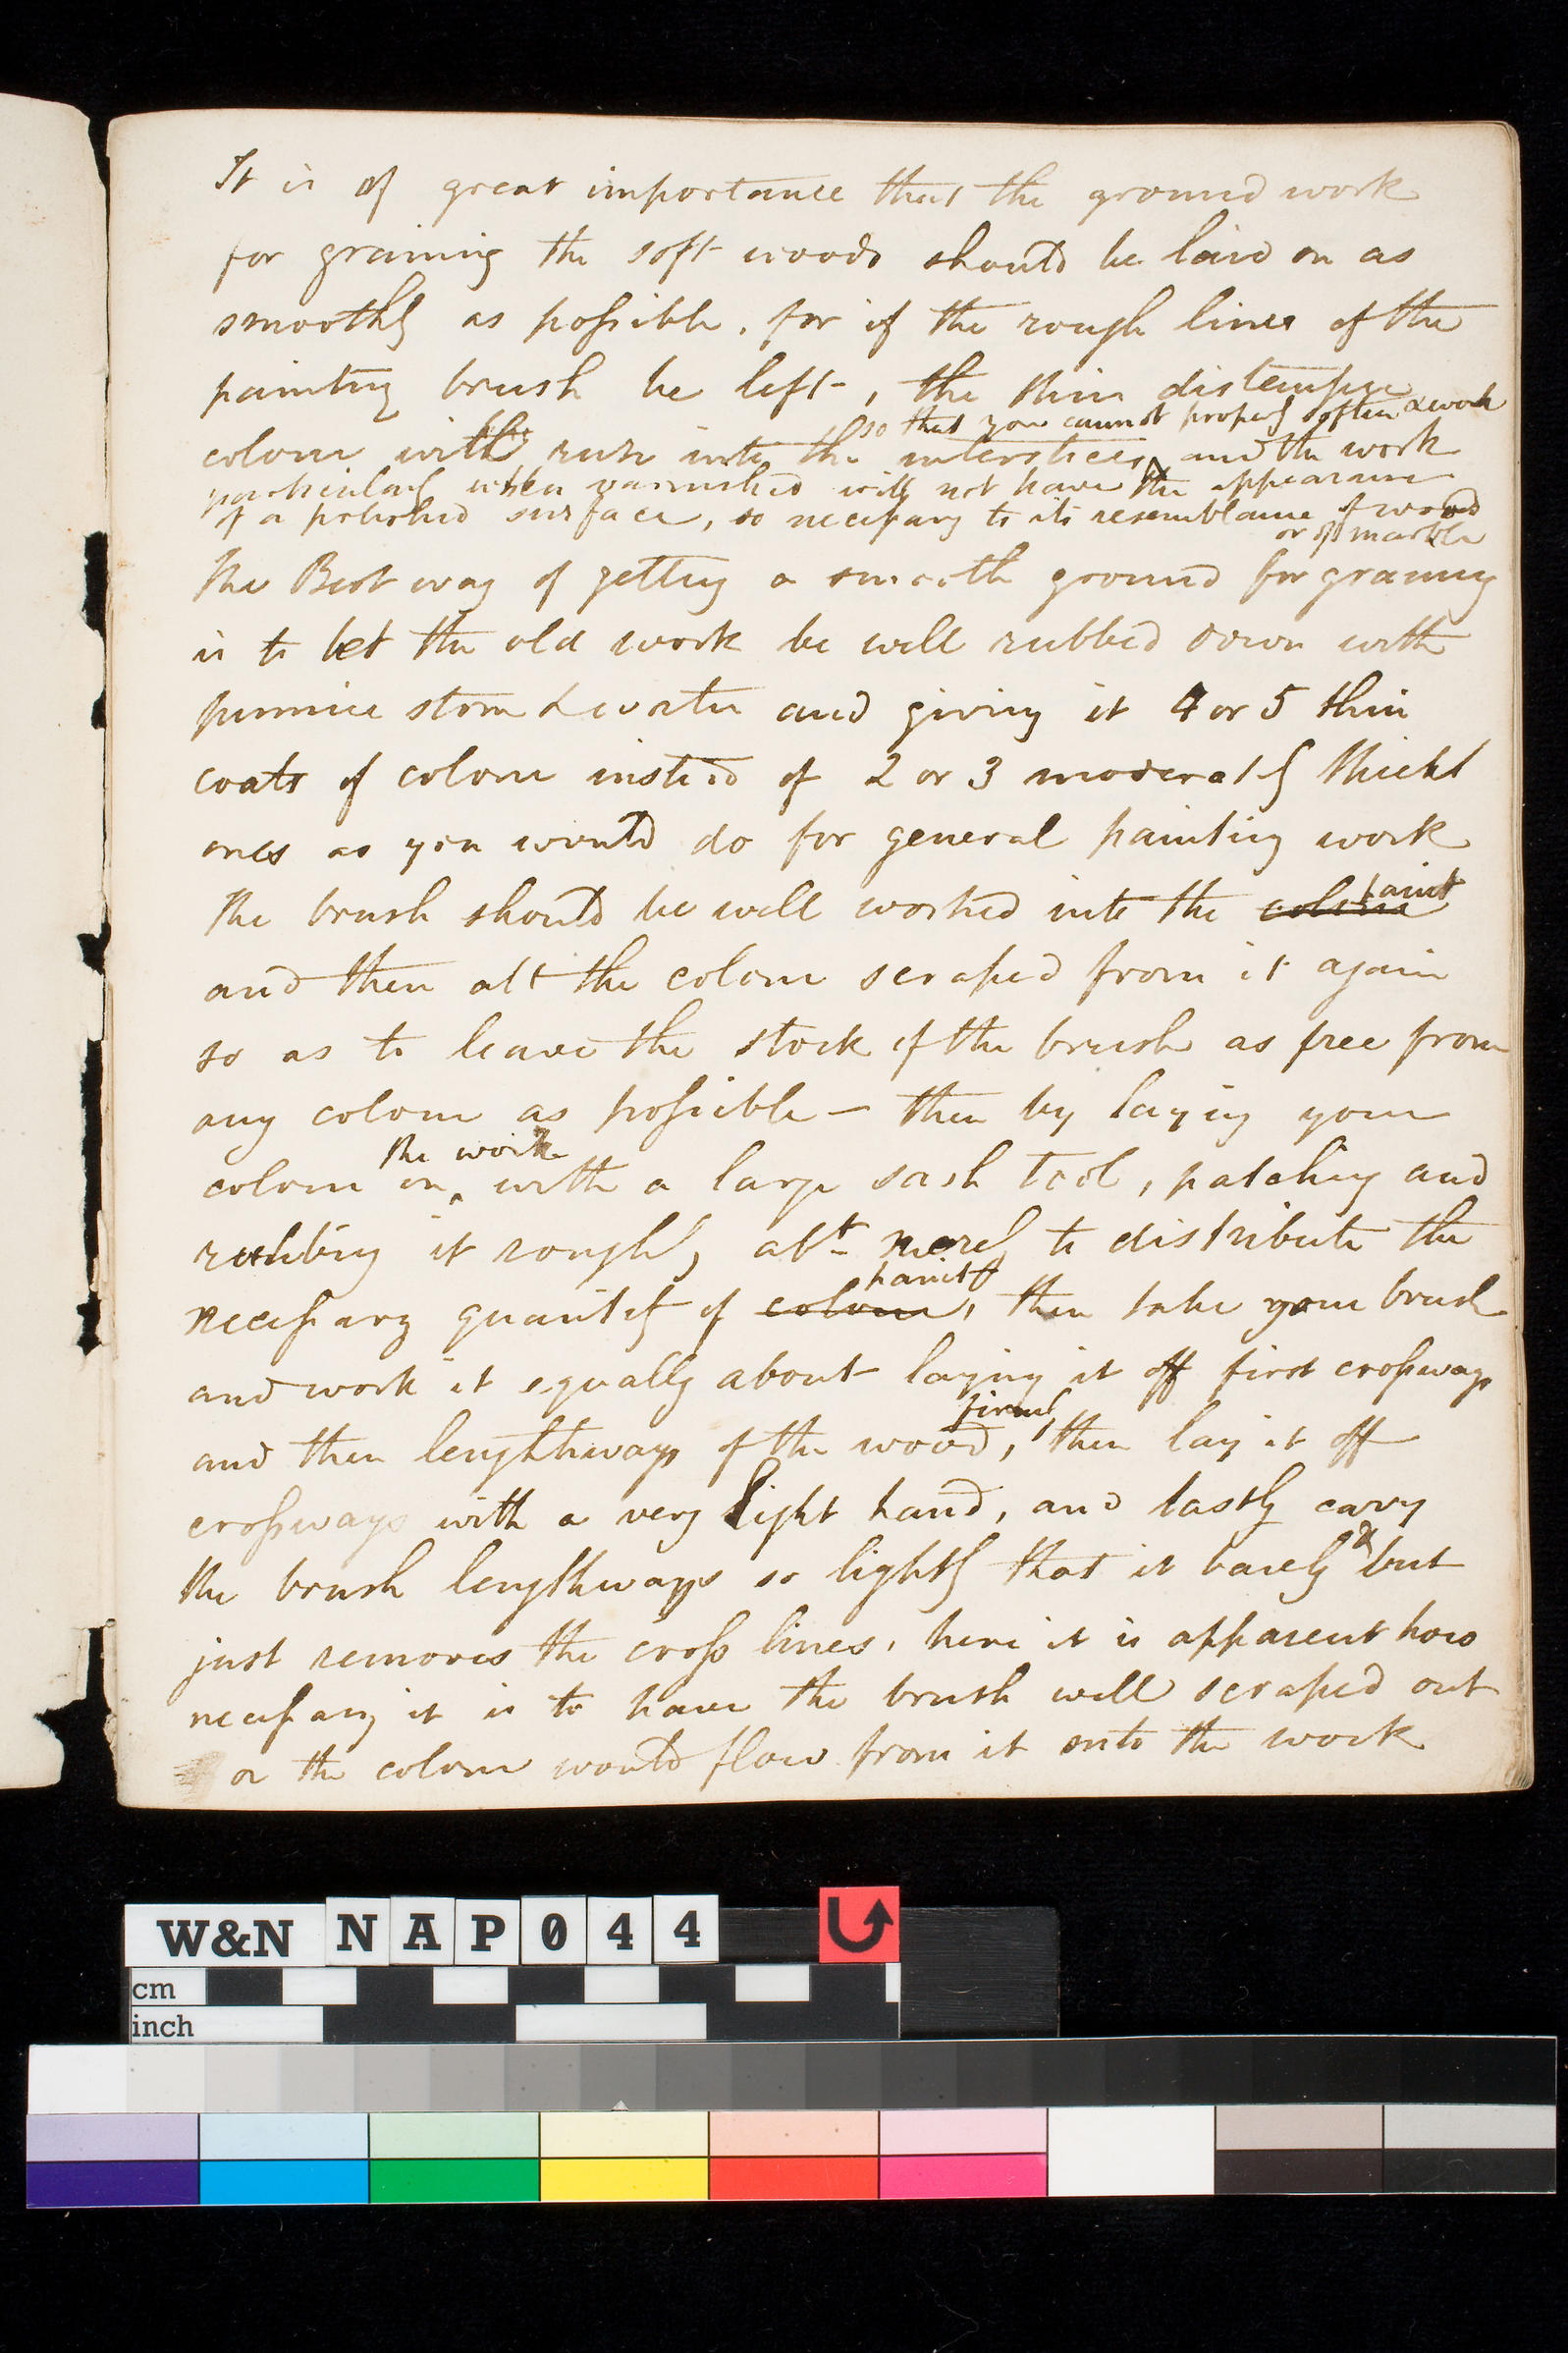 It is of great importance that the ground work
for graining the soft woods should be laid on as
smoothly as possible, for if the rough lines of the
painting brush be left, the thin distemper
so that you cannot properly soften & work
colour will run into the interstices, and the work
particularly when varnished will not have the appearance
of a polished surface, so necessary to its resemblance of wood
or of marble
The Best way of getting a smooth ground for graining
is to let the old work be well rubbed down with
pummice stone & water and giving it 4 or 5 thin
coats of colour instead of 2 or 3 moderately thickt
ones as you would do for general painting work
paint
The brush should be well worked into the colour
and then all the colour scraped from it again
so as to leave the stock of the brush as free from
any colour as possible — then by laying your
the work
colour on with a large sash tool, patching and
rubbing it roughly abt merely to distribute the
paint
necessary quantity of colour, then take your brush
and work it equally about laying it off first crossways
firmly
and then lengthways of the wood, then lay it off
crossways with a very light hand, and lastly carry
&
the brush lengthways so lightly that it barely but
just removes the cross lines, here it is apparent how
necessary it is to have the brush well scraped out
or the colour would flow from it onto the work
W&N NAP044
cm
inch